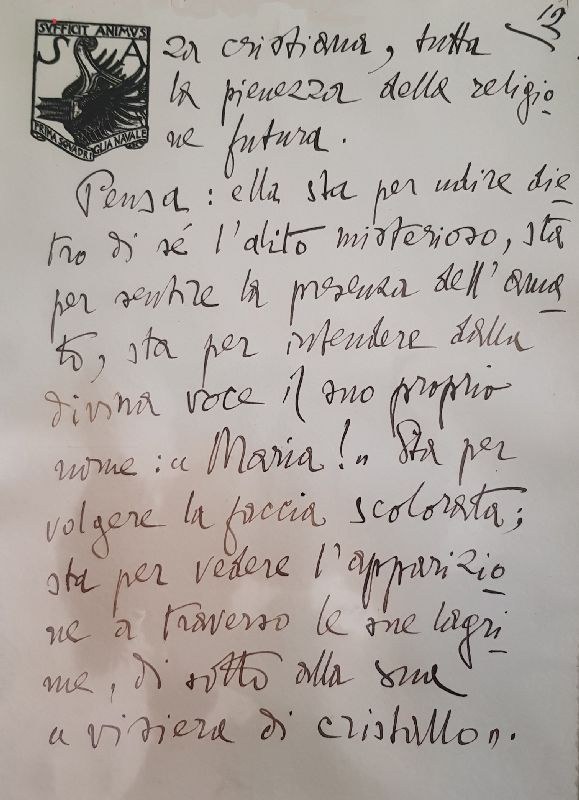 12
SVFFICIT ANIMVS
S A
PRIMA SQVADRIGLIA NAVALE
za cristiana, tutta
la pienezza della religio
ne futura.
Pensa: ella sta per udire die
tro di sé l'alito misterioso, sta
per sentire la presenza dell'ama
to, sta per intendere dalla
divina voce il suo proprio
nome: "Maria!" Sta per
volgere la faccia scolorata;
sta per vedere l'apparizio
ne a traverso le sue lagri
me, di sotto alla sua
"visiera di cristallo".